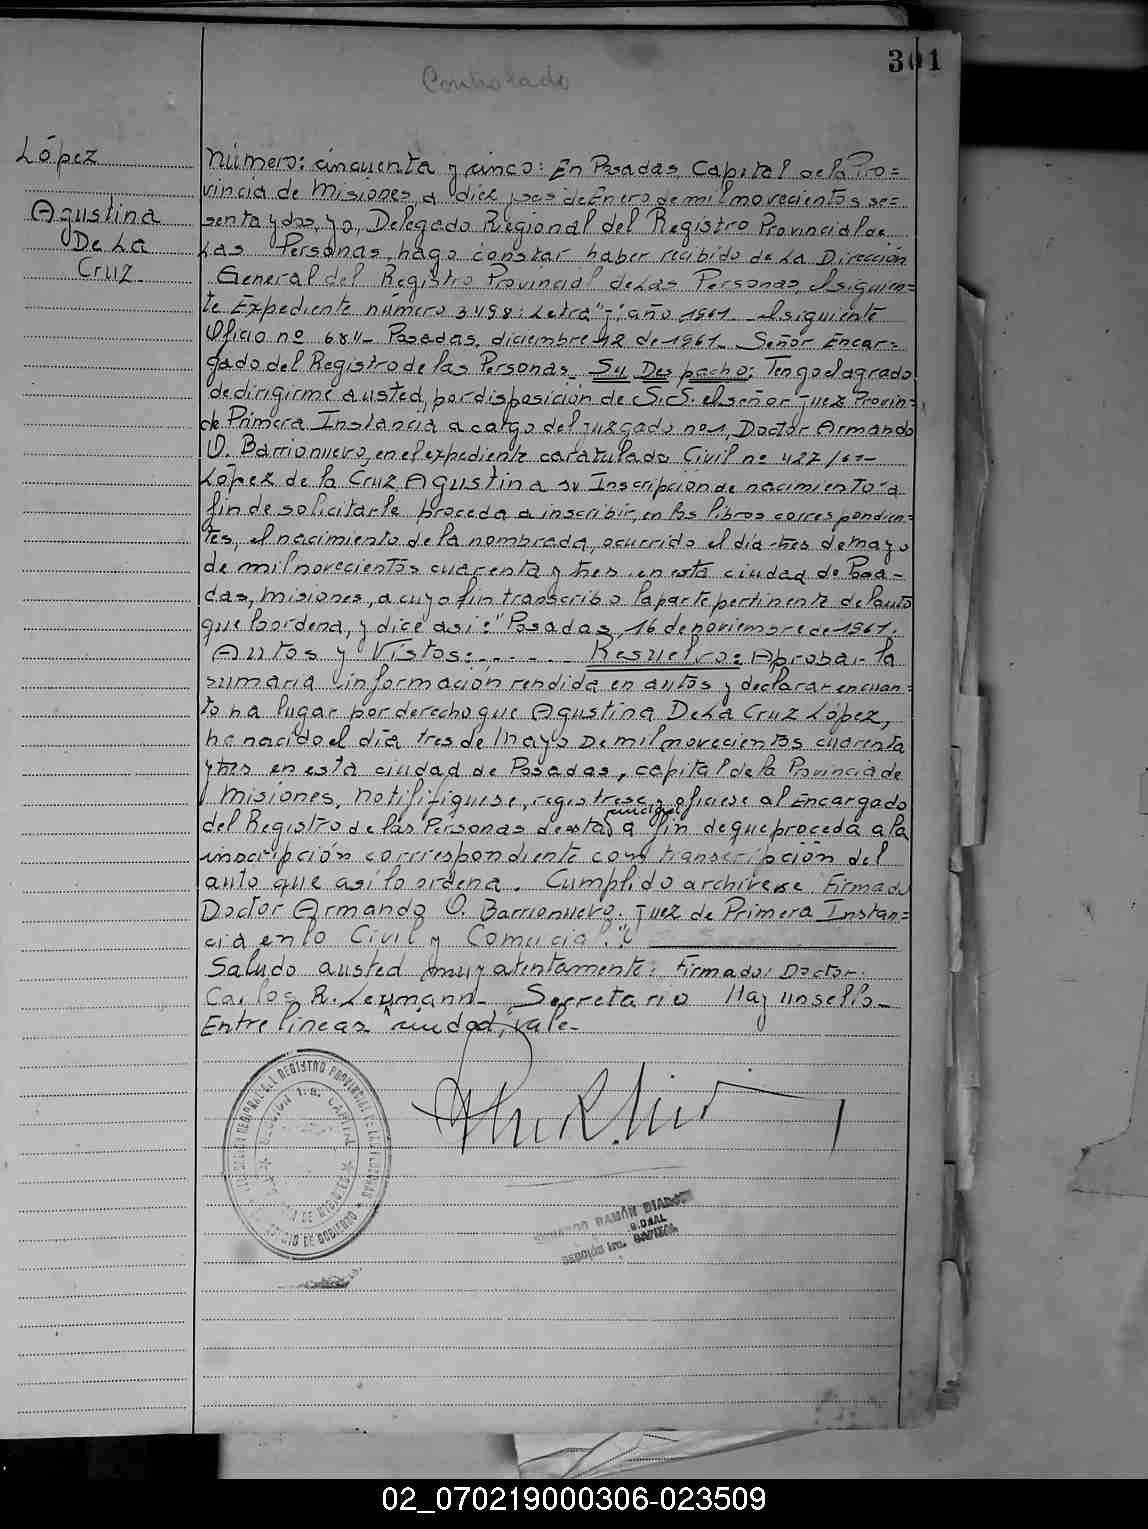 301
Controlado
López
Agustina
De La
Cruz
Número: cincuenta y cinco: En Posadas, Capital de la Pro=
vincia de Misiones, a dieciseis de Enero de mil novecientos se=
senta y dos, yo, Delegado Regional del Registro Provincial de
Las Personas, hago constar haber recibido de La Dirección
General del Registro Provincial de Las Personas, el siguien=
te Expediente número 3498: Letra "J": año 1961 - el siguiente
Oficio nº 684- Posadas, diciembre 12 de 1961- Señor Encar=
gado del Registro de las Personas- Su Despacho: Tengo el agrado
de dirigirme a usted, por disposición de S.S. el señor Juez Provin=
de Primera Instancia a cargo del juzgado nº1, Doctor Armando
O. Barrionuevo, en el expediente caratulado Civil nº 427/61-
López de la Cruz Agustina su Inscripción de nacimiento" a
fin de solicitarle proceda a inscribir, en los libros correspondien=
tes, el nacimiento de la nombrada, ocurrido el día tres de mayo
de mil novecientos cuarenta y tres, en esta ciudad de Posa-
das, Misiones, a cuyo fin transcribo la parte pertinente del auto
que lo ordena, y dice así: "Posadas, 16 de noviembre de 1961.
Autos y Vistos:...... Resuelvo: Aprobar la
sumaria información rendida en autos y declarar en cuan=
to ha lugar por derecho que Agustina De La Cruz López,
ha nacido el día tres de Mayo De mil novecientos cuarenta
y tres en esta ciudad de Posadas, capital de la Provincia de
Misiones, Notifíquese, regístrese y ofíciese al Encargado
ciudad
del Registro de las Personas de esta a fin de que proceda a la
inscripción correspondiente con transcripción del
auto que así lo ordena. Cumplido archívese Firmado
Doctor Armando O. Barrionuevo. Juez de Primera Instan=
cia en lo Civil y Comercial."
Saludo a usted muy atentamente: Firmado: Doctor
Carlos R. Leymann- Secretario Hay un sello-
Entre líneas "ciudad", vale-
REGISTRO PROVINCIAL DE LAS PERSONAS
SECCION 1a. CAPITAL
DE MISIONES
DE GOBIERNO
RAMÓN
CAPITAL
02_070219000306-023509